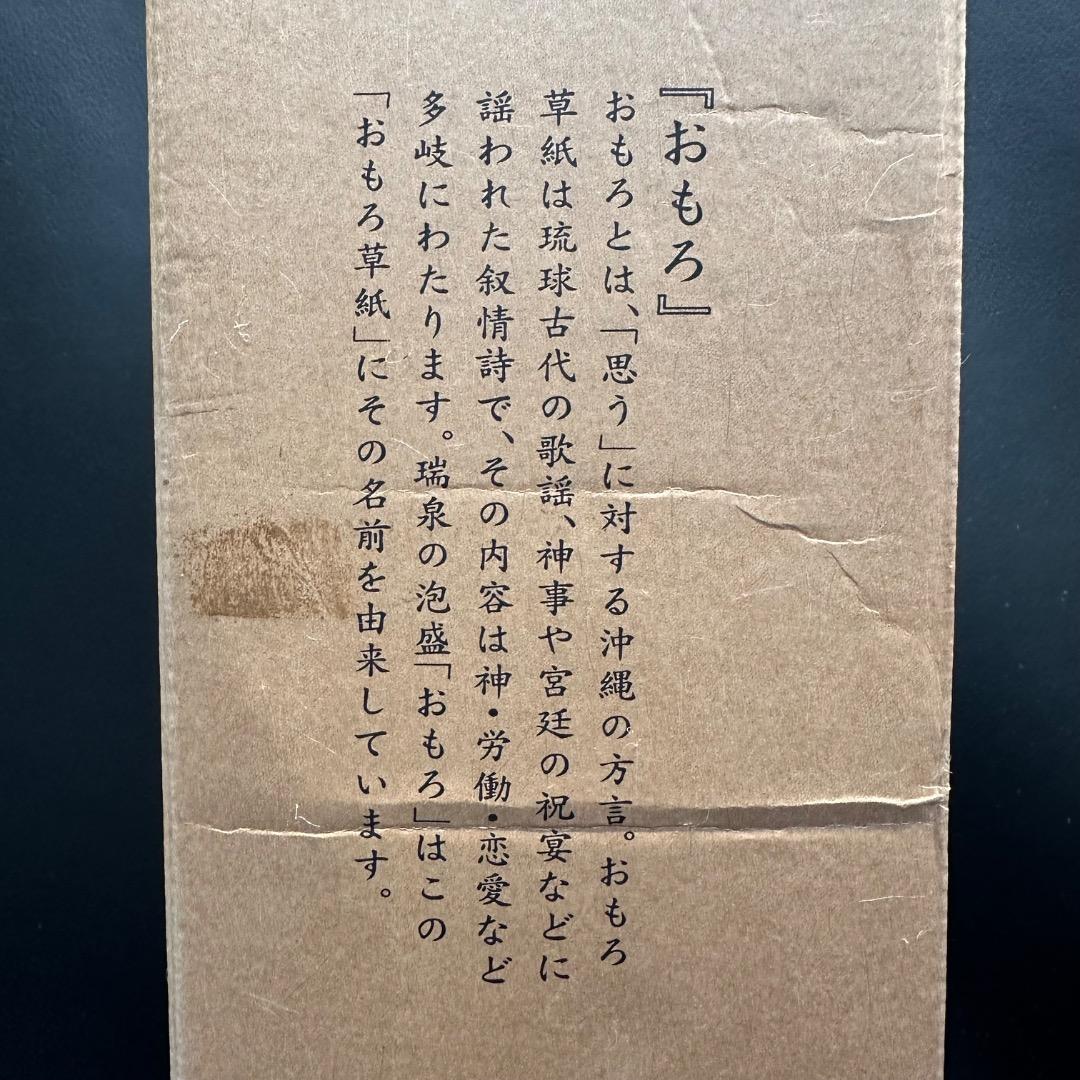 『おもろ』
おもろとは、「思う」に対する沖縄の方言。おもろ
草紙は琉球古代の歌謡、神事や宮廷の祝宴などに
謡われた叙情詩で、その内容は神・労働・恋愛など
多岐にわたります。瑞泉の泡盛「おもろ」はこの
「おもろ草紙」にその名前を由来しています。